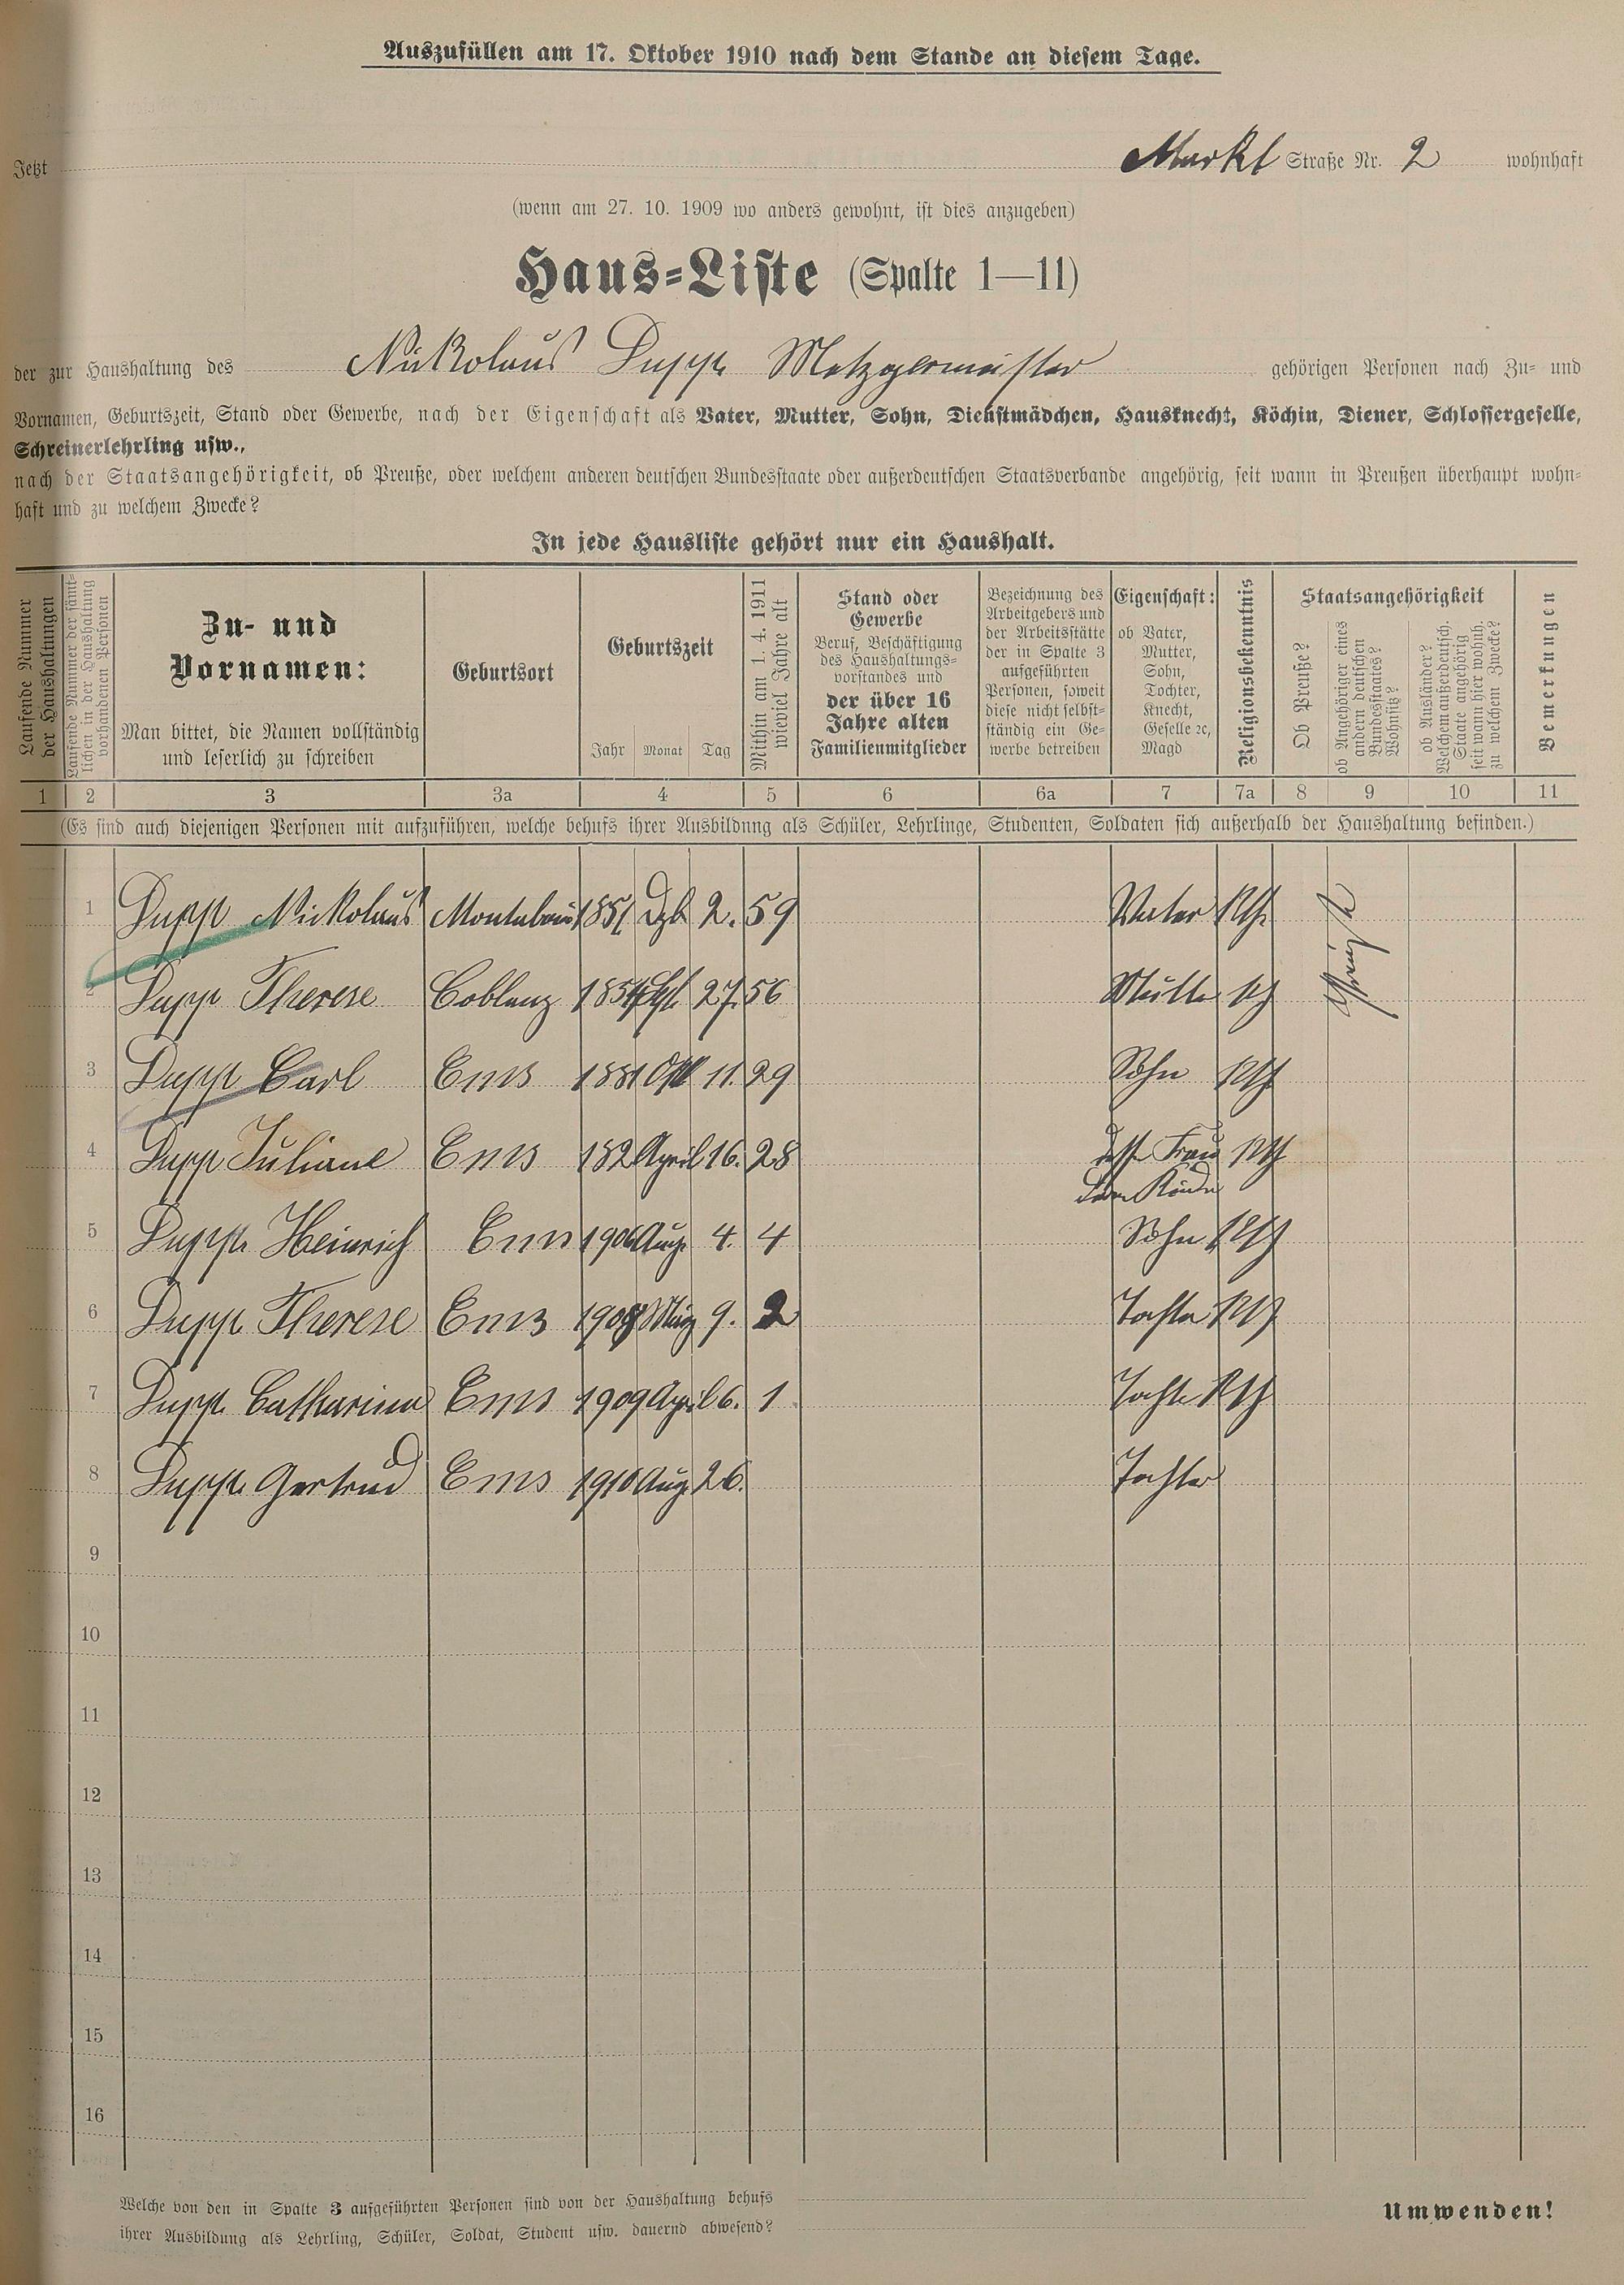 Auszufüllen am 17. Oktober 1910 nach dem Stande an diesem Tage.
Jetzt Markt Straße Nr. 2 wohnhaft
(wenn am 27. 10. 1909 wo anders gewohnt, ist dies anzugeben)
Haus-Liste (Spalte 1—11)
der zur Haushaltung des Nickolaus Dupp Metzgermeister gehörigen Personen nach Zu- und
Vornamen, Geburtszeit, Stand oder Gewerbe, nach der Eigenschaft als Vater, Mutter, Sohn, Dienstmädchen, Hausknecht, Köchin, Diener, Schlossergeselle,
Schreinerlehrling usw.,
nach der Staatsangehörigkeit, ob Preuße, oder welchem anderen deutschen Bundesstaate oder außerdeutschen Staatsverbande angehörig, seit wann in Preußen überhaupt wohn-
haft und zu welchem Zwecke?
In jede Hausliste gehört nur ein Haushalt.
Laufende Nummer
der Haushaltungen
Laufende Nummer der sämt-
lichen in der Haushaltung
vorhandenen Personen
Zu- und
Vornamen:
Man bittet, die Namen vollständig
und leserlich zu schreiben
Geburtsort
Geburtszeit
Jahr Monat Tag
Mithin am 1. 4. 1911
wieviel Jahre alt
Stand oder
Gewerbe
Beruf, Beschäftigung
des Haushaltungs-
vorstandes und
der über 16
Jahre alten
Familienmitglieder
Bezeichnung des
Arbeitgebers und
der Arbeitsstätte
der in Spalte 3
aufgeführten
Personen, soweit
diese nicht selbst-
ständig ein Ge-
werbe betreiben
Eigenschaft:
ob Vater,
Mutter,
Sohn,
Tochter,
Knecht,
Geselle ec,
Magd
Religionsbekenntnis
Staatsangehörigkeit
Ob Preuße?
ob Angehöriger eines
andern deutschen
Bundesstaates?
Wohnsitz?
ob Ausländer?
Welchem außerdeutsch.
Staate angehörig
seit wann hier wohnh.
zu welchem Zwecke?
Bemerkungen
1 2 3 3a 4 5 6 6a 7 7a 8 9 10 11
(Es sind auch diejenigen Personen mit aufzuführen, welche behufs ihrer Ausbildung als Schüler, Lehrlinge, Studenten, Soldaten sich außerhalb der Haushaltung befinden.)
1 Dupp Nickolaus Montabaur 1851 Dzb 2. 59 Vater Kth.
2 Dupp Therese Coblenz 1854 27. 56 Mutter
3 Dupp Carl Ems 1881 11. 29 Sohn Kth
4 Dupp Juliane Ems 182 April 16. 28 dessen Frau Kth
deren Kinder
5 Dupp Heinrich Ems 1906 Aug. 4. 4 Sohn Kth
6 Dupp Therese Ems 1908 März 9. 2 Tochter Kth
7 Dupp Catharina Ems 1909 April 6. 1 Tochter Kth
8 Dupp Gertrud Ems 1910 Aug. 26. Tochter
9
10
11
12
13
14
15
16
Welche von den in Spalte 3 aufgeführten Personen sind von der Haushaltung behufs
ihrer Ausbildung als Lehrling, Schüler, Soldat, Student usw. dauernd abwesend?
Umwenden!